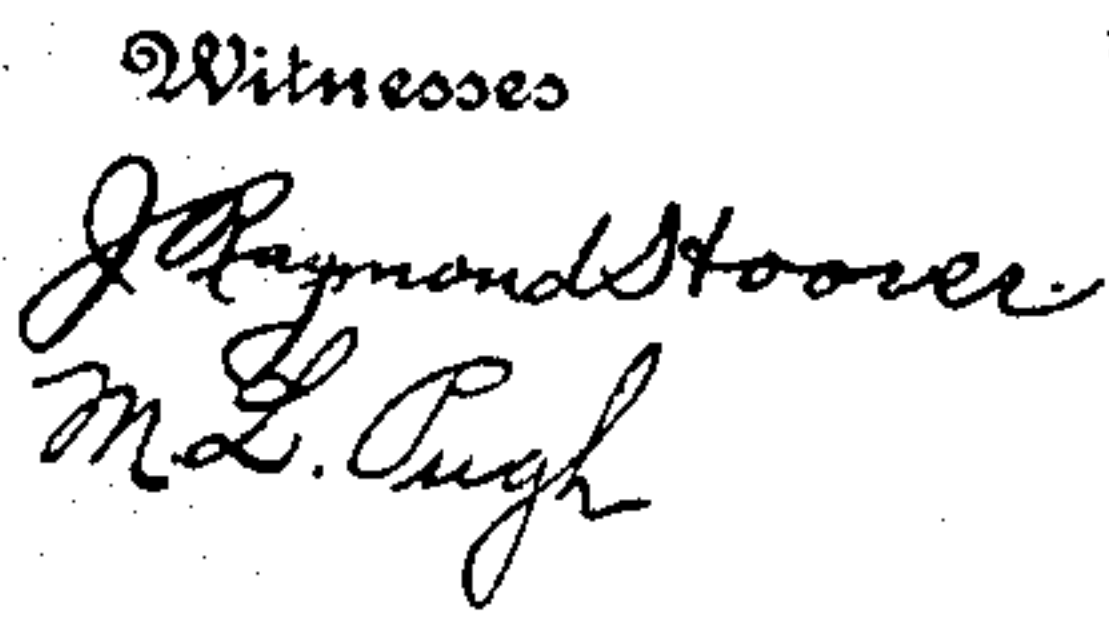 Witnesses
J Raymond Hoover.
M. L. Pugh